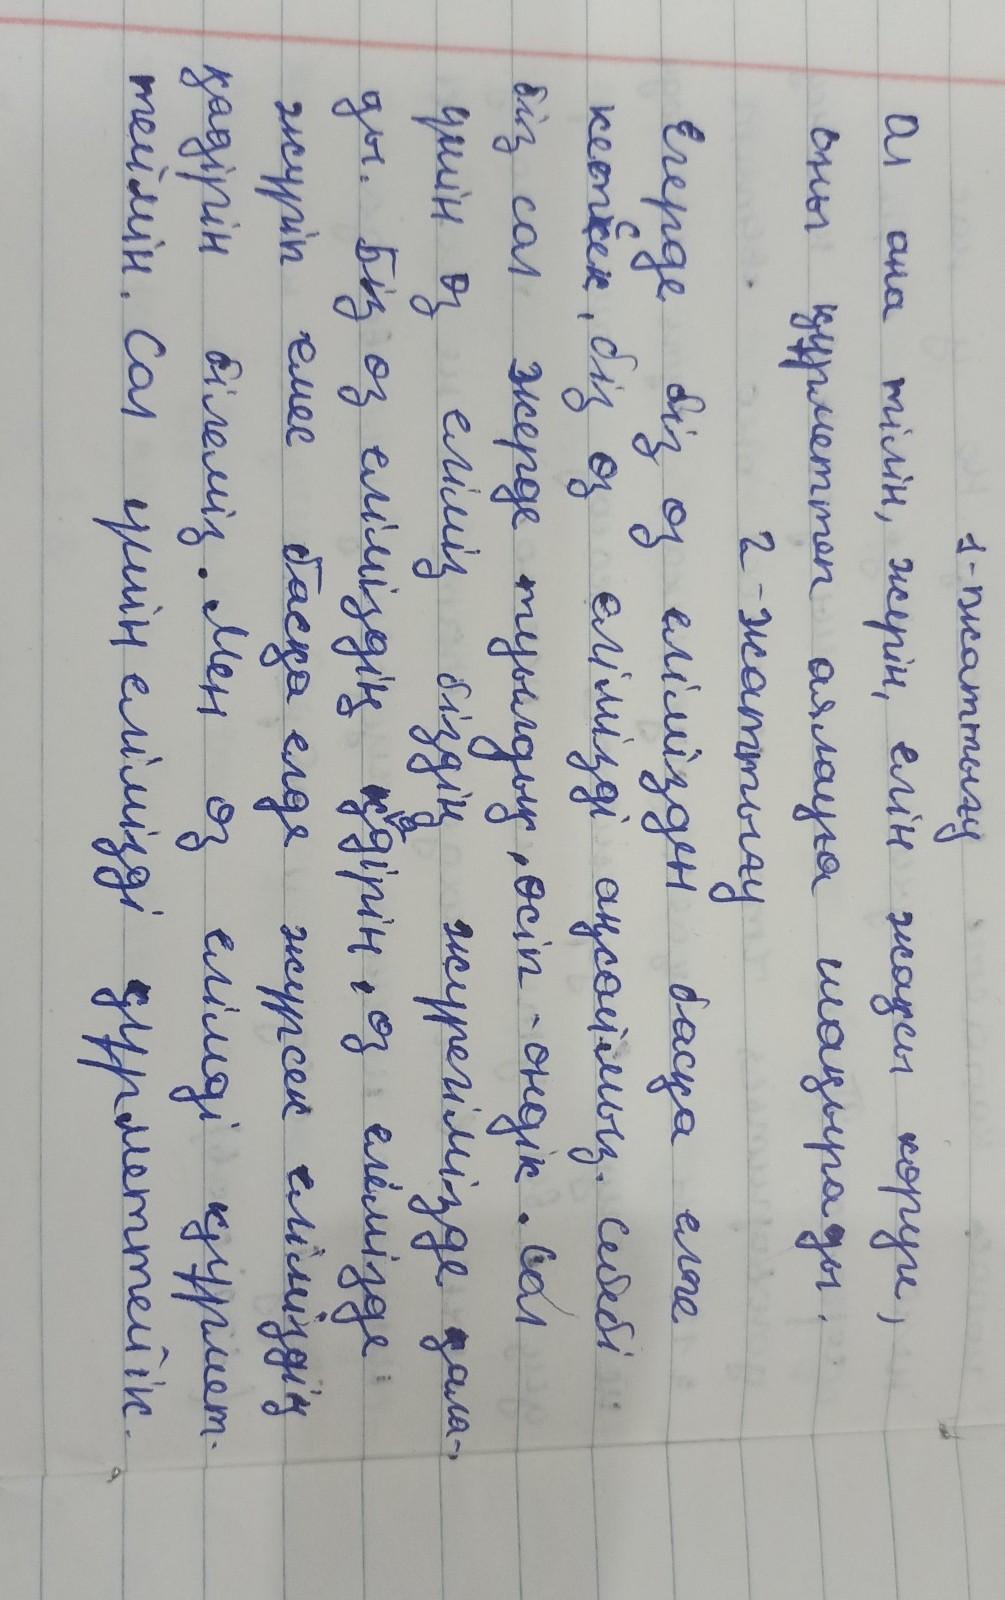 1-жаттығу
Ол ана тілін, жерін, елін жақсы көруге,
оны құрметтеп аялауға шақырады.
2-жаттығу
Егерде біз өз елімізден басқа елге
кетсек, біз өз елімізді аңсаймыз. Себебі
біз сол жерде туылдық, өсіп-өндік. Сол
үшін өз еліміз біздің жүрегімізде қала-
ды. Біз өз еліміздің қадірін, өз елімізде
жүріп емес басқа елде жүрсек еліміздің
қадірін білеміз. Мен өз елімді құрмет-
теймін. Сол үшін елімізді құрметтейік.